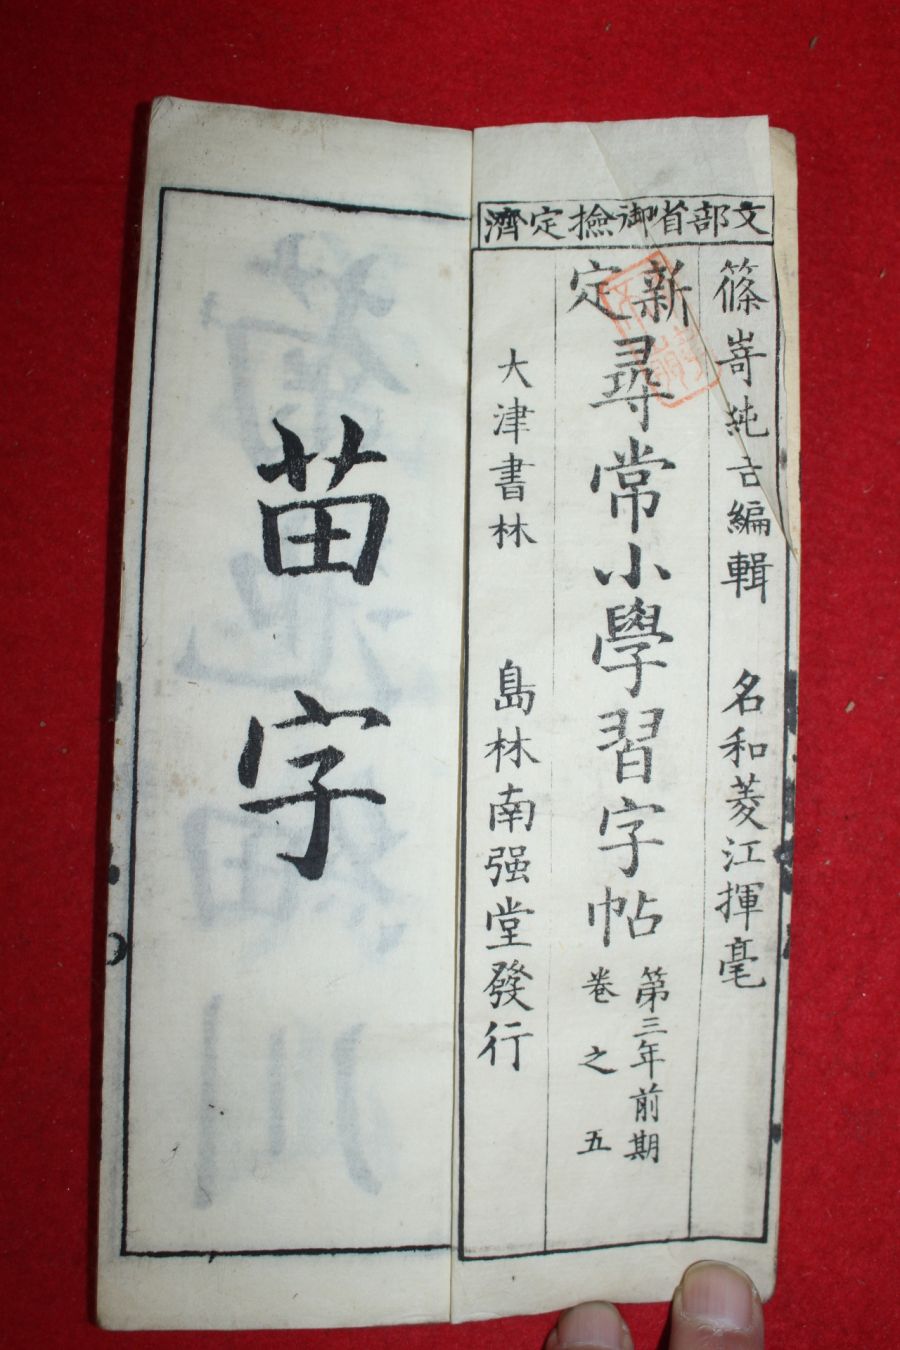 文部省御撿定濟
篠嵜純吉編輯 名和菱江揮毫
新定
尋常小學習字帖
第三年前期
卷之五
大津書林 島林南强堂發行
苗字